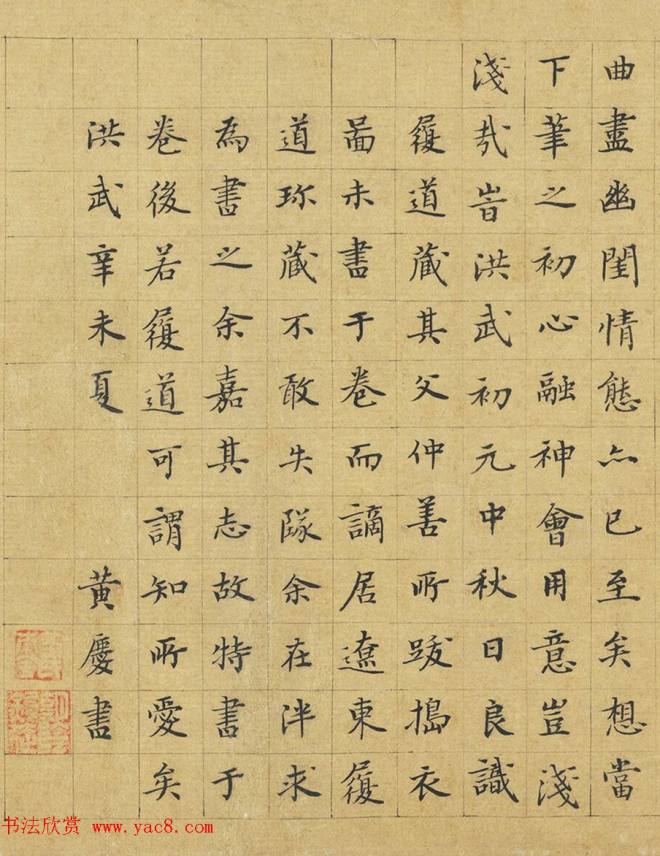 曲盡幽閨情態亦已至矣想當
下筆之初心融神會用意豈淺
淺哉旹洪武初元中秋日良識
履道藏其父仲善所跋搗衣
啚未書于卷而謫居遼東履
道珎藏不敢失隊余在泮求
為書之余嘉其志故特書于
卷後若履道可謂知所愛矣
洪武辛未夏 黃慶書
书法欣赏 www.yac8.com